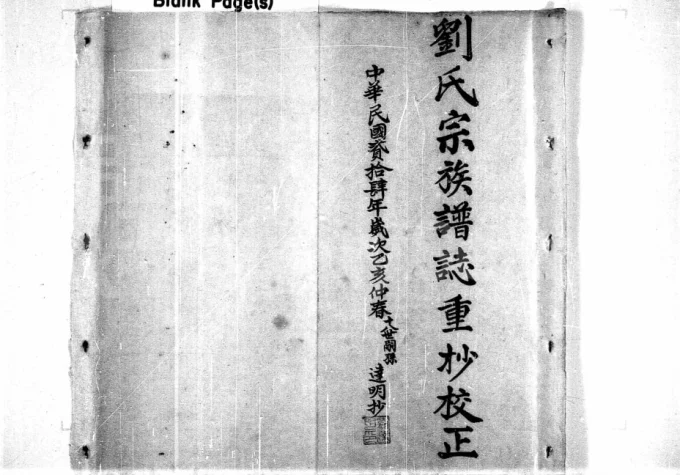 Blank Page(s)
劉氏宗族譜誌重抄校正
中華民國貳拾肆年歲次乙亥仲春
世嗣孫
達明抄